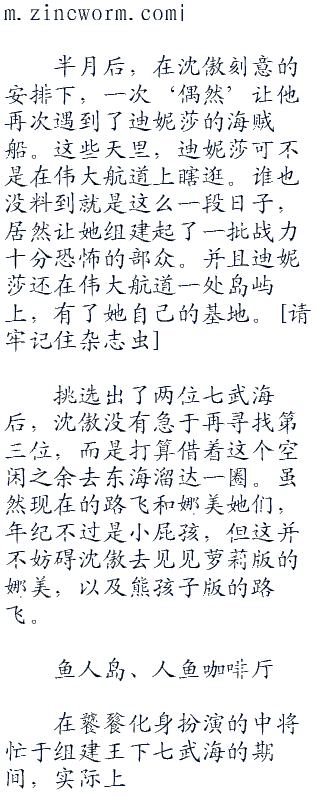 m.zincworm.comi
半月后，在沈傲刻意的
安排下，一次‘偶然’让他
再次遇到了迪妮莎的海贼
船。这些天里，迪妮莎可不
是在伟大航道上瞎逛。谁也
没料到就是这么一段日子，
居然让她组建起了一批战力
十分恐怖的部众。并且迪妮
莎还在伟大航道一处岛屿
上，有了她自己的基地。[请
牢记住杂志虫]
挑选出了两位七武海
后，沈傲没有急于再寻找第
三位，而是打算借着这个空
闲之余去东海溜达一圈。虽
然现在的路飞和娜美她们，
年纪不过是小屁孩，但这并
不妨碍沈傲去见见萝莉版的
娜美，以及熊孩子版的路
飞。
鱼人岛、人鱼咖啡厅
在饕餮化身扮演的中将
忙于组建王下七武海的期
间，实际上